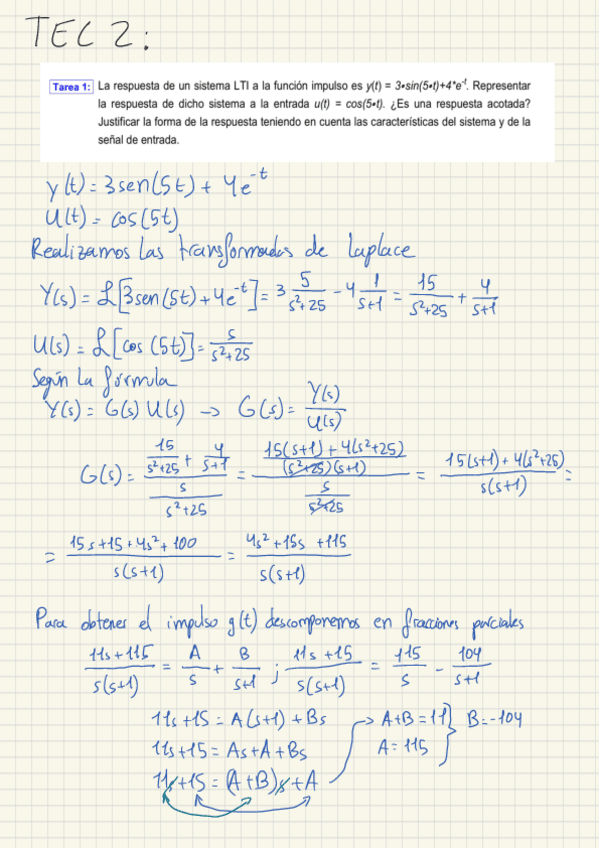 TEC 2:
Tarea 1: La respuesta de un sistema LTI a la función impulso es y(t) = 3•sin(5•t)+4*e^-t. Representar
la respuesta de dicho sistema a la entrada u(t) = cos(5•t). ¿Es una respuesta acotada?
Justificar la forma de la respuesta teniendo en cuenta las características del sistema y de la
señal de entrada.
y(t) = 3sen(5t) + 4e^-t
U(t) = cos(5t)
Realizamos las transformadas de laplace
Y(s) = L[3sen(5t)+4e^-t] = 3 5/(s²+25) - 4 1/(s+1) = 15/(s²+25) + 4/(s+1)
U(s) = L[cos(5t)] = s/(s²+25)
Según la fórmula
Y(s) = G(s) U(s) → G(s) = Y(s)/U(s)
G(s) = (15/(s²+25) + 4/(s+1))/(s/(s²+25)) = ((15(s+1) + 4(s²+25))/((s²+25)(s+1)))/(s/(s²+25)) = (15(s+1) + 4(s²+25))/(s(s+1)) =
= (15s+15+4s²+100)/(s(s+1)) = (4s²+15s+115)/(s(s+1))
Para obtener el impulso g(t) descomponemos en fracciones parciales
(11s+115)/(s(s+1)) = A/s + B/(s+1) ; (11s+15)/(s(s+1)) = 115/s - 104/(s+1)
11s+15 = A(s+1) + Bs → A+B = 11 } B=-104
11s+15 = As+A+Bs A = 115
11s+15 = (A+B)s+A